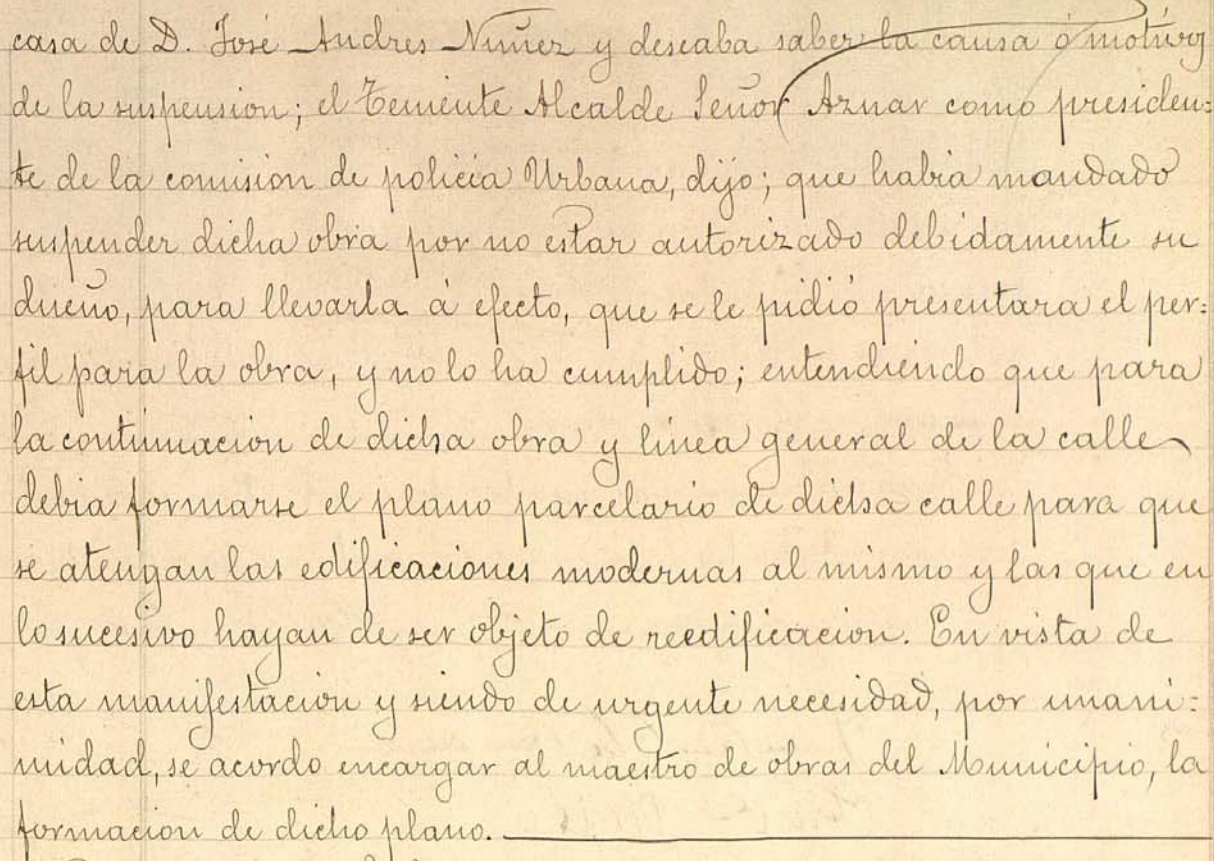 casa de D. José Andres Nuñez y deseaba saber la causa ó motivo
de la suspension; el Teniente Alcalde Señor Aznar como presiden:
te de la comisión de policía Urbana, dijo; que había mandado
suspender dicha obra por no estar autorizado debidamente su
dueño, para llevarla á efecto, que se le pidió presentara el per:
fil para la obra, y no lo ha cumplido; entendiendo que para
la continuacion de dicha obra y linea general de la calle
debia formarse el plano parcelario de dicha calle para que
se atengan las edificaciones modernas al mismo y las que en
lo sucesivo hayan de ser objeto de reedificacion. En vista de
esta manifestacion y siendo de urgente necesidad, por unani:
midad, se acordo encargar al maestro de obras del Municipio, la
formacion de dicho plano.